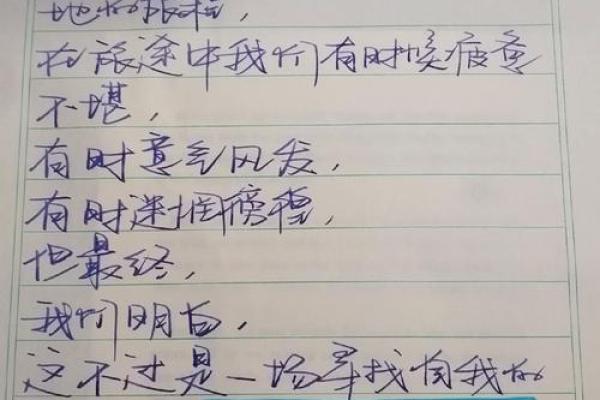 地的旅程，
在旅途中我们有时候疲惫
不堪，
有时意气风发，
有时迷惘徬徨，
但最终，
我们明白，
这不过是一场寻找自我的